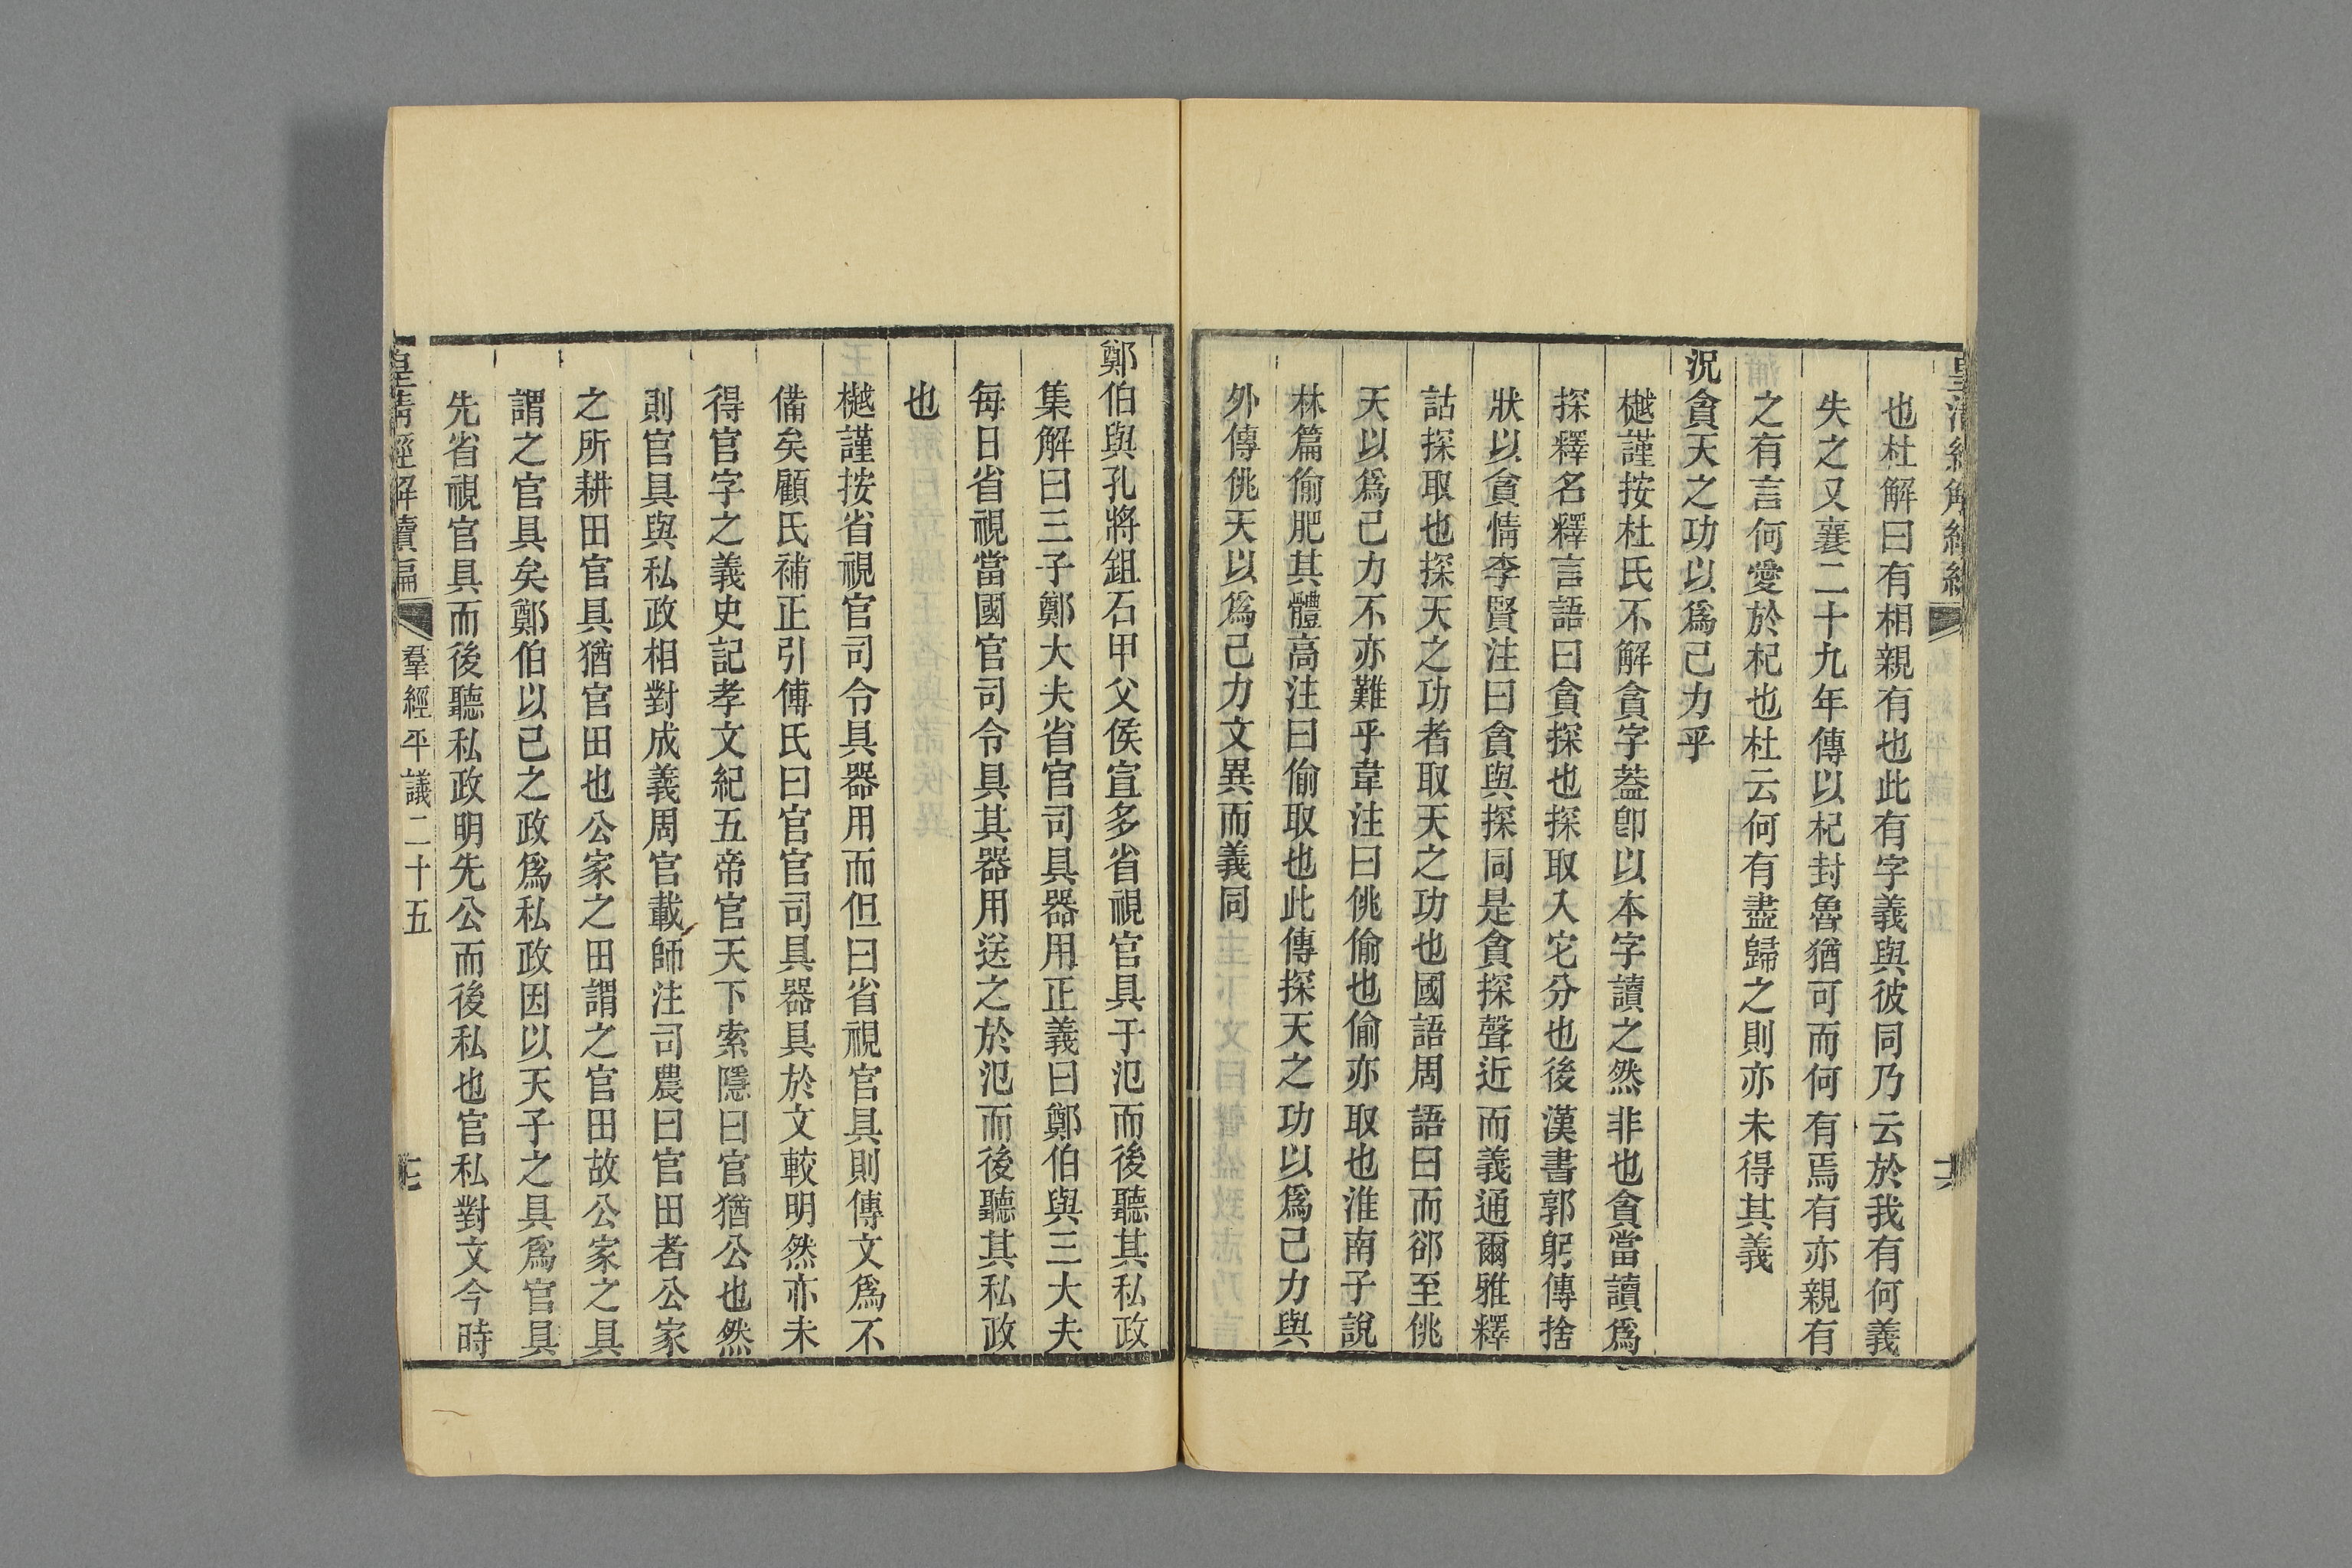 也杜解曰有相親有也此有字義與彼同乃云於我有何義
失之又襄二十九年傳以杞封魯猶可而何有焉有亦親有
之有言何愛於杞也杜云何有盡歸之則亦未得其義
況貪天之功以爲己力乎
樾謹按杜氏不解貪字葢卽以本字讀之然非也貪當讀爲
探釋名釋言語曰貪探也探取入它分也後漢書郭躬傳捨
狀以貪情李賢注曰貪與探同是貪探聲近而義通爾雅釋
詁探取也探天之功者取天之功也國語周語曰而郤至佻
天以爲己力不亦難乎韋注曰佻偷也偷亦取也淮南子說
林篇偷肥其體高注曰偷取也此傳探天之功以爲己力與
外傳佻天以爲己力文異而義同
鄭伯與孔將鉏石甲父侯宣多省視官具于氾而後聽其私政
集解曰三子鄭大夫省官司具器用正義曰鄭伯與三大夫
每日省視當國官司令具其器用送之於氾而後聽其私政
也
樾謹按省視官司令具器用而但曰省視官具則傳文爲不
備矣顧氏補正引傅氏曰官官司具器具於文較明然亦未
得官字之義史記孝文紀五帝官天下索隱曰官猶公也然
則官具與私政相對成義周官載師注司農曰官田者公家
之所耕田官具猶官田也公家之田謂之官田故公家之具
謂之官具矣鄭伯以己之政爲私政因以天子之具爲官具
先省視官具而後聽私政明先公而後私也官私對文今時
皇淸經解續編 羣經平議二十五